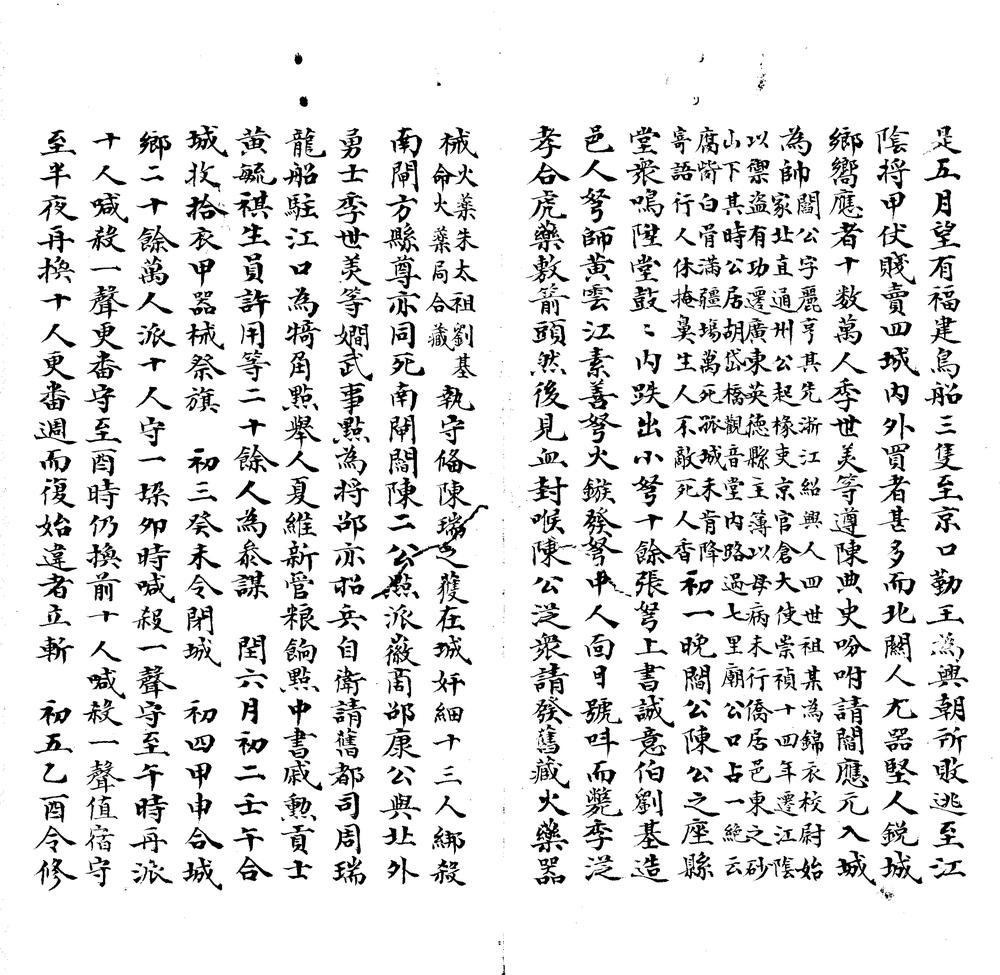 是五月望有福建鳥船三隻至京口勤王為興朝所敗逃至江
陰将甲伏賤賣四城内外買者甚多而北關人尤器堅人銳城
鄉嚮應者十数萬人季世美等遵陳典史吩咐請閻應元入城
為帥閻公字麗亨其先浙江紹興人四世祖某為錦衣校尉始
家北直通州公起椽吏京官倉大使崇禎十四年遷江陰
以禦盗有功遷廣東英德縣主薄以母病未行僑居邑東之砂
山下其時公居胡岱橋觀音堂内路過七里廟公口占一絶云
腐胔白骨滿疆場萬死孤城未肯降
寄語行人休掩鼻生人不敵死人香初一晚閻公陳公之座縣
堂衆鳴陞堂鼓〻内跌出小弩十餘張弩上書誠意伯劉基造
邑人弩師黄雲江素善弩火鏃發弩中人面目號呌而斃季淀
孝合虎藥敷箭頭然後見血封喉陳公淀衆請發舊藏火藥器
械火藥朱太祖劉基
命火藥局合藏執守俻陳瑞之獲在城奸細十三人綁殺
南閘方縣尊亦同死南閘閻陳二公㸃派徽商邵康公與北外
勇士季世美等嫺武事點為将邵亦招兵自衛請舊都司周瑞
龍船駐江口為犄角點舉人夏維新管粮餉點中書戚勲貢士
黄毓祺生員許用等二十餘人為叅謀　閏六月初二壬午合
城收拾衣甲器械祭旗　初三癸未令閉城　初四甲申合城
鄉二十餘萬人派十人守一垜夘時喊殺一聲守至午時再派
十人喊殺一聲更畨守至酉時仍換前十人喊殺一聲值宿守
至半夜再換十人更畨週而復始違者立斬　初五乙酉令修